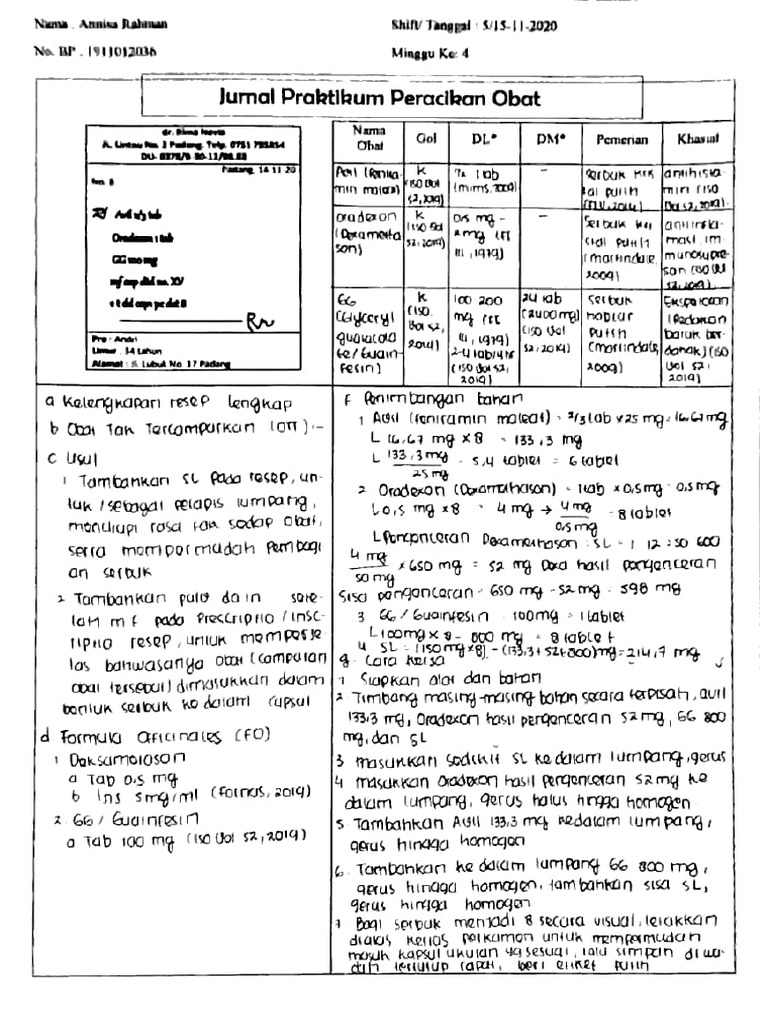 Nama . Annisa Rahman
Shift/ Tanggal : 5/15-11-2020
No. BP . 1911012036
Minggu Ke: 4
Jurnal Praktikum Peracikan Obat
A. Lintau No. 2 Padang. Telp. 0751
Padang, 14 11 20
No. 8
R/ Avil 2/3 tab
Oradexon 1 tab
GG 100 mg
mf cap dtd no. XV
s t dd cap pc det 8
Pro : Andri
Umur : 34 tahun
Alamat : Jl. Lubuk No 17 Padang
Nama Obat Gol DL* DM* Pemerian Khasiat
Avil (Fenira-
min maleat)
K
(ISO Vol
52, 2019)
tab
(MIMS, 2009)
-
serbuk
putih
antihista
min (ISO
Vol 52, 2019)
Oradexon
(Dexameta
son)
K
(ISO Vol
52, 2019)
0,5 mg -
2 mg (FI
III, 1979)
-
serbuk
putih
(martindale,
2009)
antiinfla-
masi, im
munosupre-
san (ISO Vol
52, 2019)
GG
(Glyceryl
guaiacola
te/ Guain-
fesin)
K
(ISO
Vol 52,
2019)
100 200
mg (FI
III, 1979)
2-4 tab/4 hr
(ISO Vol 52,
2019)
24 tab
(2400 mg)
(ISO Vol
52, 2019)
serbuk
hablur
putih
(martindale,
2009)
Ekspektoran
(Peredaran
batuk ber-
dahak) (ISO
Vol 52
2019)
a Kelengkapan resep lengkap
b Obat Tak Tercampurkan (OTT) : -
c Usul
1 Tambahkan SL pada resep, un-
tuk / sebagai pelapis lumpang,
menutupi rasa tak sedap obat,
serta mempermudah pembagi
an serbuk
2 Tambahkan pulv da in sete-
lah m f pada Prescriptio / ins-
criptio resep, untuk memperje-
las bahwasanya obat (campuran
obat tersebut) dimasukkan dalam
bentuk serbuk ke dalam capsul
d Formula Officinales (FO)
1 Deksametason
a Tab 0,5 mg
b Inj 5mg/ml (Fornas, 2019)
2 GG / Guainfesin
a Tab 100 mg (ISO Vol 52, 2019)
F Penimbangan bahan
1 Avil (feniramin maleat) = 2/3 tab x 25 mg = 16,67 mg
L 16,67 mg x 8 = 133,3 mg
L 133,3 mg / 25 mg = 5,4 tablet = 6 tablet
2 Oradexon (Dexamethason) = 1 tab x 0,5 mg = 0,5 mg
L 0,5 mg x 8 = 4 mg → 4 mg / 0,5 mg = 8 tablet
L Pengenceran Dexamethason : SL = 1 12 : 50 600
4 mg / 50 mg x 650 mg = 52 mg Dexa hasil pengenceran
Sisa pengenceran = 650 mg - 52 mg = 598 mg
3 GG / Guainfesin = 100 mg = 1 tablet
L 100 mg x 8 = 800 mg = 8 tablet
4 SL = (150 mg x 8) - (133,3 + 52 + 800) mg = 214,7 mg
g. Cara Kerja
1 Siapkan alat dan bahan
2 Timbang masing-masing bahan secara terpisah, avil
133,3 mg, Oradexon hasil pengenceran 52 mg, GG 800
mg, dan SL
3 masukkan sedikit SL ke dalam lumpang, gerus
4 masukkan Oradexon hasil pengenceran 52 mg ke
dalam lumpang, gerus halus hingga homogen
5 Tambahkan Avil 133,3 mg kedalam lumpang,
gerus hingga homogen
6. Tambahkan ke dalam lumpang GG 800 mg,
gerus hingga homogen, tambahkan sisa SL,
gerus hingga homogen
7 Bagi serbuk menjadi 8 secara visual, letakkan
diatas kertas perkamen untuk mempermudah
masuk kapsul ukuran yg sesuai, lalu simpan di wa-
dah tertutup rapat, beri etiket putih